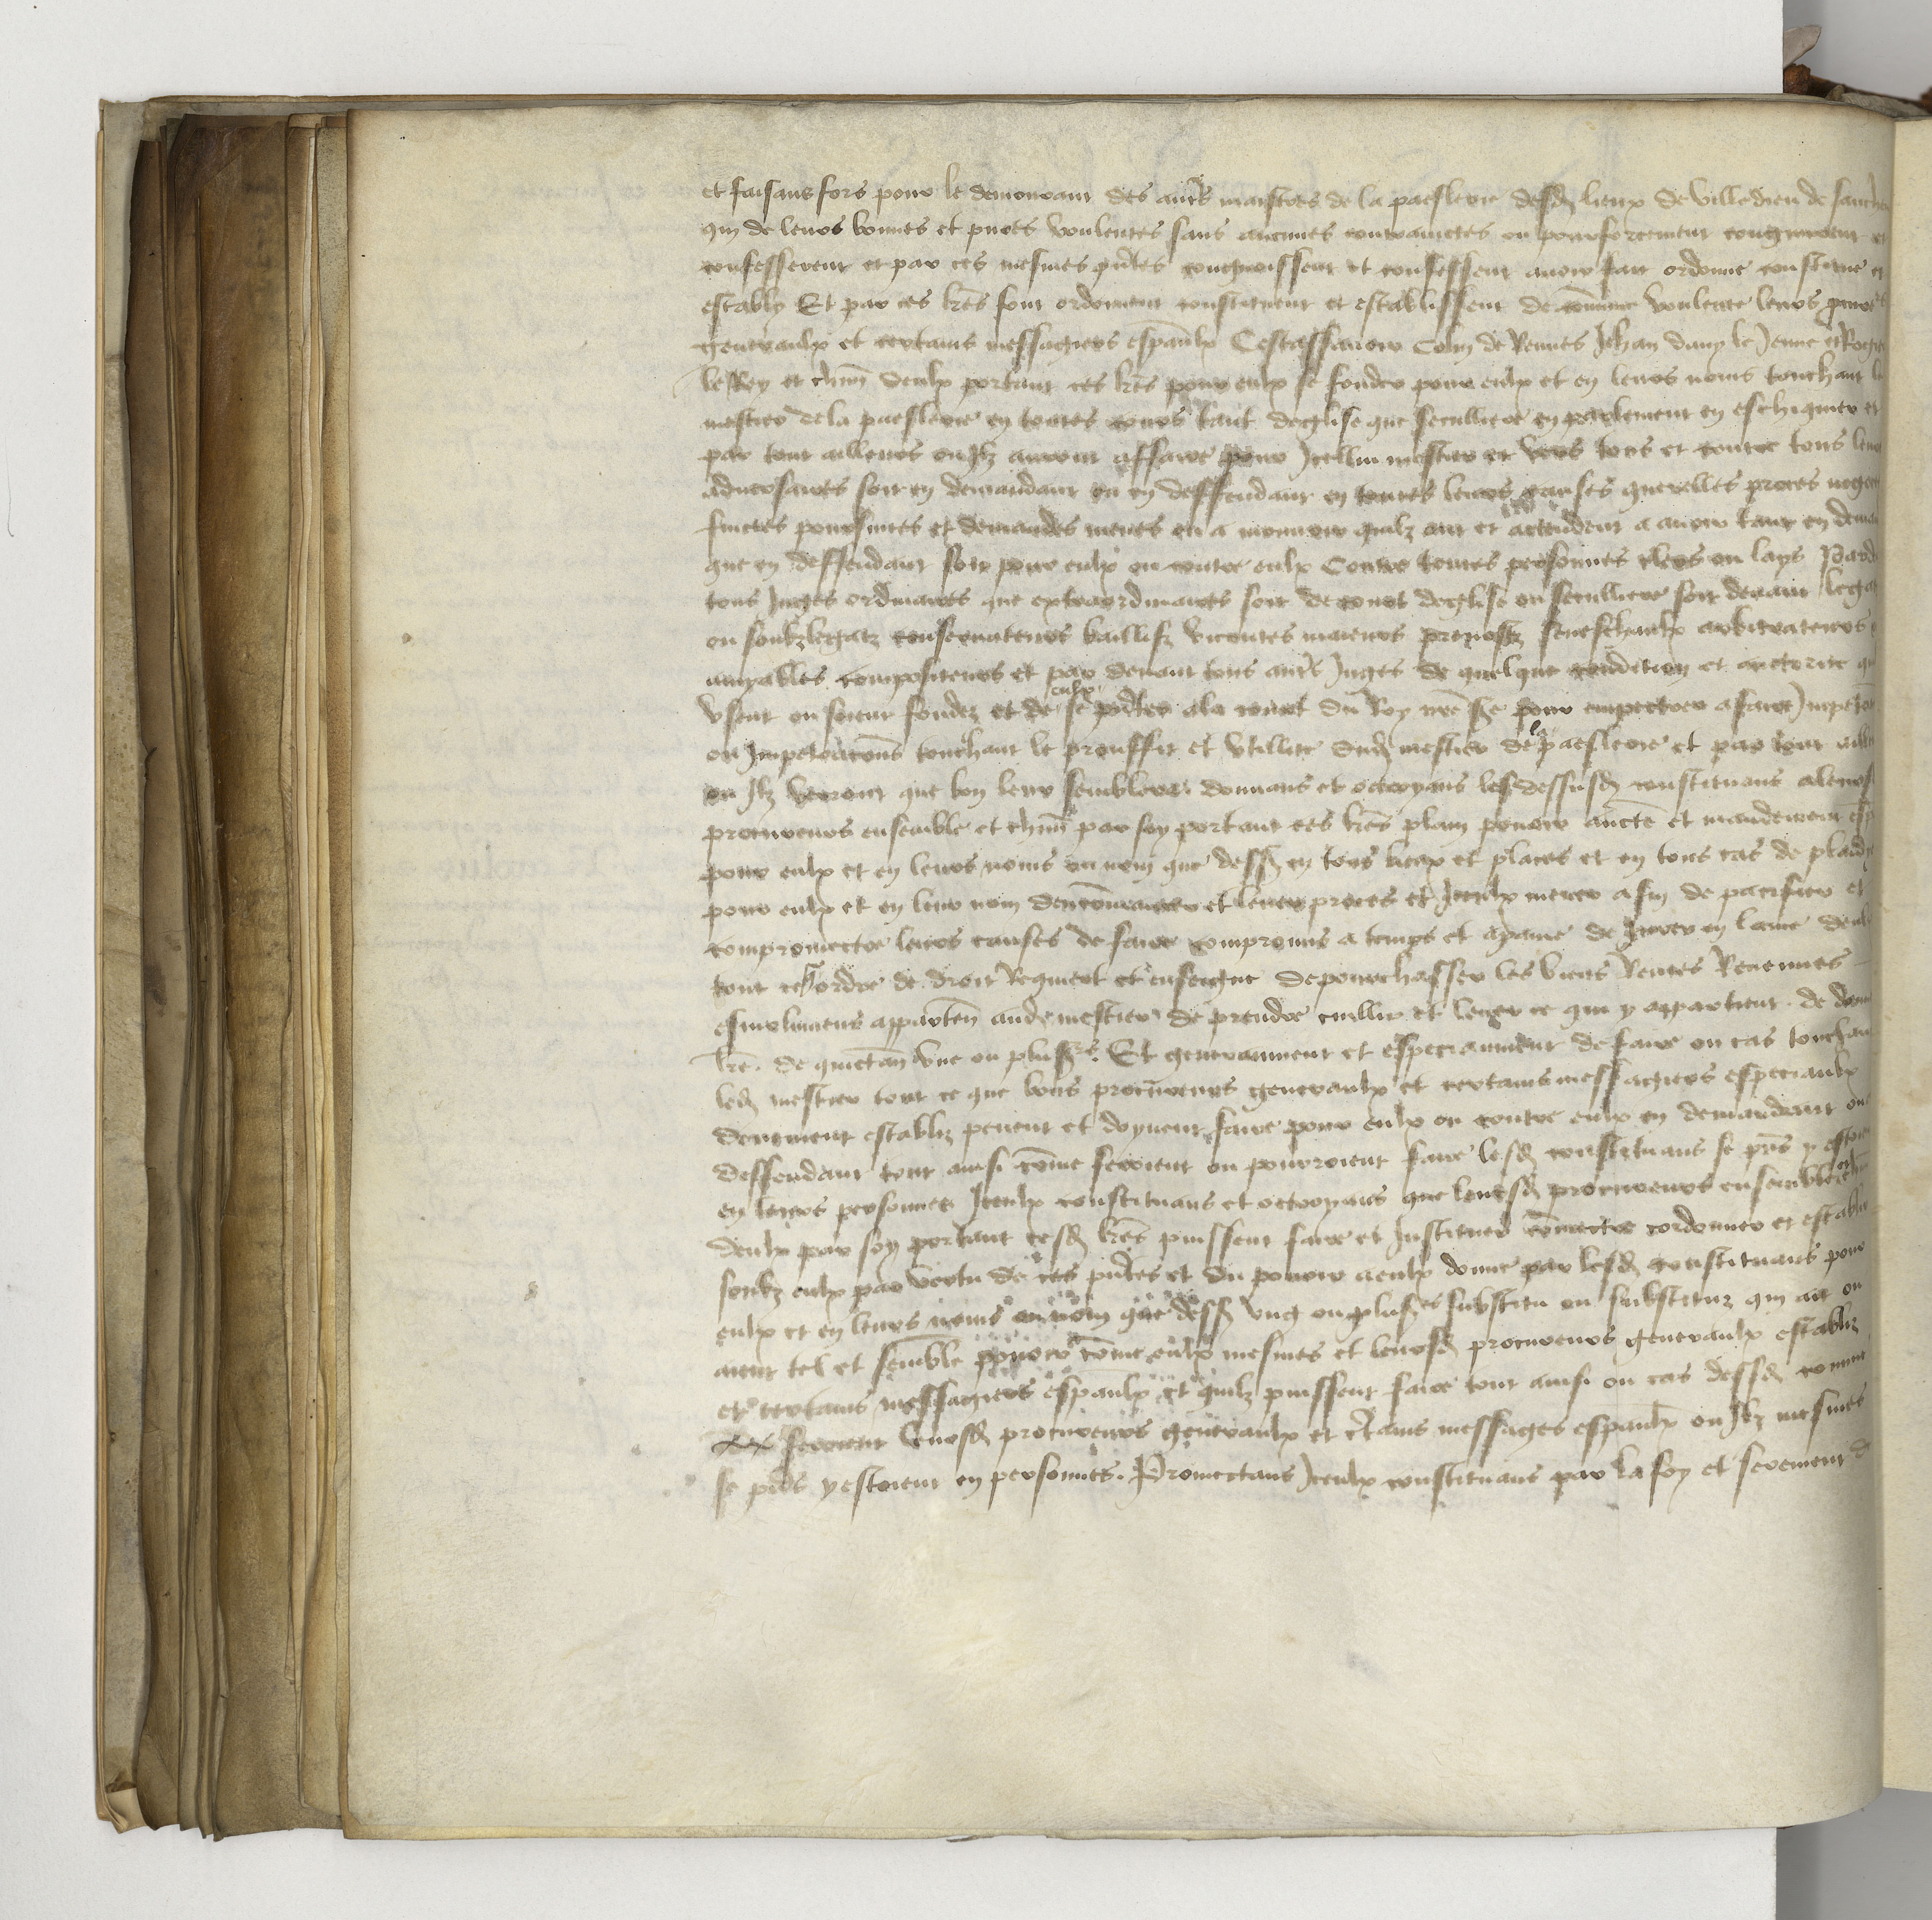 et faisans fors pour le demourant des autres maistres de la paeslerie desd lieux de villedieu de sauche
qui de leurs bonnes et pures voulentes sans aucunes contrainctes ou pourforcement congneurent et
confesserent et par ces mesmes pntes congnoissent et confessent avoir fait ordonne constitue et
estably Et par ces lres font ordonnent constituent et establissent de comune voulente leurs procurs
generaulx et certains messagiers espaulx Cestassavoir Colin de Rennes Jehan dany le Jenne et Rogier
le Roy et chun deulx portant ces lres pour eulx se fonder pour eulx et en leurs noms touchant le
mestier de la paeslerie en toutes cours tant deglise que seculliere en parlement en eschiquier et
par tout ailleurs ou Ilz auront affaire pour Icellui mestier et vers tous et contre tous leurs
adversaires soit en demandant ou en deffendant en toutes leurs causes querelles proces negoces
fuictes poursuites et demandes meues ou a mouvoir quilz ont et actendent a avoir tant en demandant
que en deffendant soit pour eulx ou contre eulx Contre toutes personnes clers ou lays Pardevant
tous Juges ordinaires que extraordinaires soit de court deglise ou seculliere soit devant legatz
ou soubzlegatz conservateurs baillifz vicontes maieurs prevostz seneschaulx arbitrateurs
amyables compositeurs et par devant tous autres Juges de quelque condition et auctorite quilz
usent ou soient fondez et de se eulx pnter a la court du Roy nre sire pour empectrer a faire Impetracion
ou Impetracions touchant le prouffit et utillite dud mestier de la paeslerie et par tout ailleurs
ou Ilz verront que bon leur semblera donnans et octroyans lesdessusd constituans a leursd
procureurs ensemble et chun par soy portant ces lres plain povoir aucte et mandement espal
pour eulx et en leurs noms ou nom que dessus en tous lieux et places et en tous cas de plaidier
pour eulx et en leur nom dencommencer et lever proces et Iceulx mener a fin de pacifier et
compromectre leurs causes de faire compromis a temps et a paine de Jurer en lame deulx
tout ce que ordre de droit Requiert et enseigne de pourchasser les biens Rentes Revenues
esmolumens apparten aud mestier de prendre cuillir et lever ce qui y appartient de donner
lre de quictan une ou plusrs Et generaument et especiaument de faire ou cas touchant
led mestier tout ce que bons procureurs generaulx et certains messagiers especiaulx
deuement establiz pevent et doyvent faire pour eulx ou contre eulx en demandant ou
deffendant tout ainsi come seroient ou pourroient faire lesd constituans se pns y estoient
en leurs personnes Iceulx constituans et octroyans que leursd procureurs ensemble et chun
deulx par soy portant cesd lres puissent faire et Instituer comectre ordonner et establir
soubz eulx par vertu de ces pntes et du povoir a eulx donne par lesd constituans pour
eulx et en leurs noms ou nom que dessus ung ou plusrs substitu ou substituz qui ait ou
aient tel et semble povoir come eulx mesmes et leursd procureurs generaulx establiz
et certains messagiers espaulx et quilz puissent faire tout ainsi ou cas dessusd comme
seroient leursd procureurs generaulx et ctains messages espaulx ou Ilz mesmes
se pns y estoient en personnes. Promectans Iceulx constituans par la foy et serement d